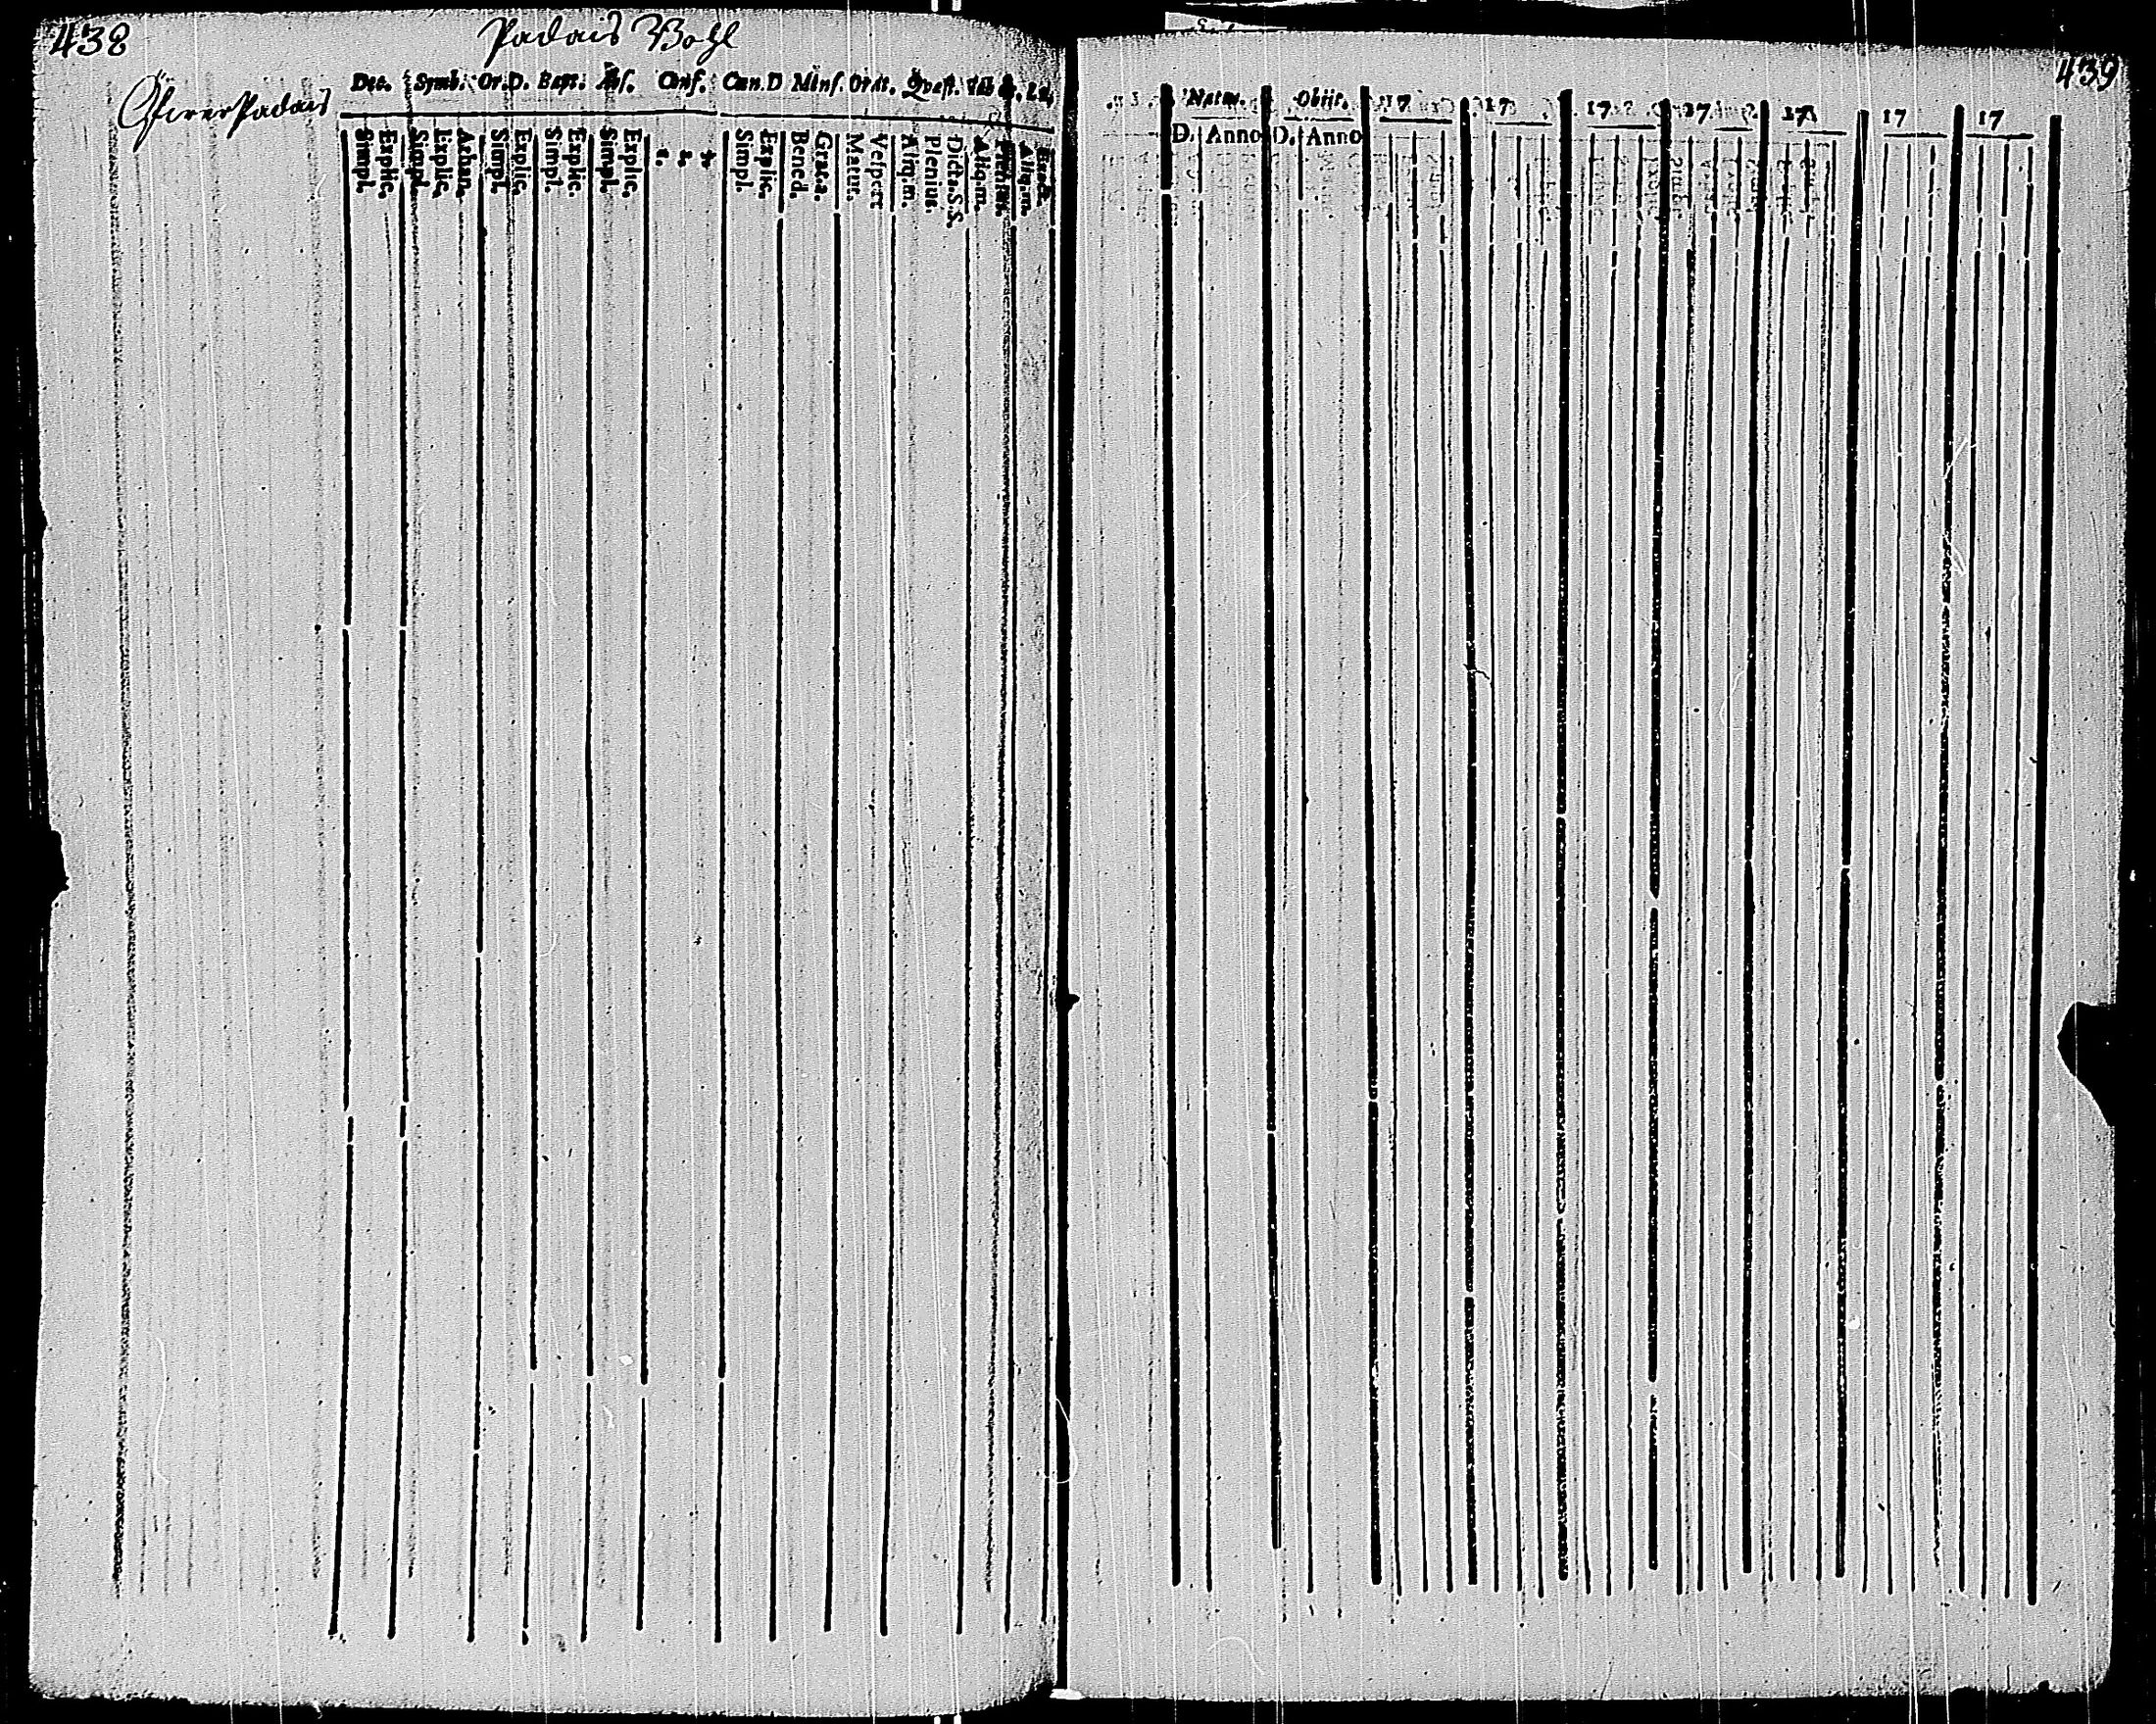 438
Padais Bohl
Öfverpadais
Dec. Symb. Or.D. Bapt. Abs. Conf. Cœn.D Mens. Orat. Qvæst. Tab
Simpl. Explic. Simpl. Explic. Athan. Simpl. Explic. Simpl. Explic. Simpl. Explic. 1. 2. 3. Simpl. Explic. Bened. Grat.a. Matut. Vespert Aliq.m. Plenius. Dicta.S.S. Aliq.m. Aliq.m. Exact.
439
Natus. Obiit. 17 17 17 17 17 17 17
D. Anno D. Anno